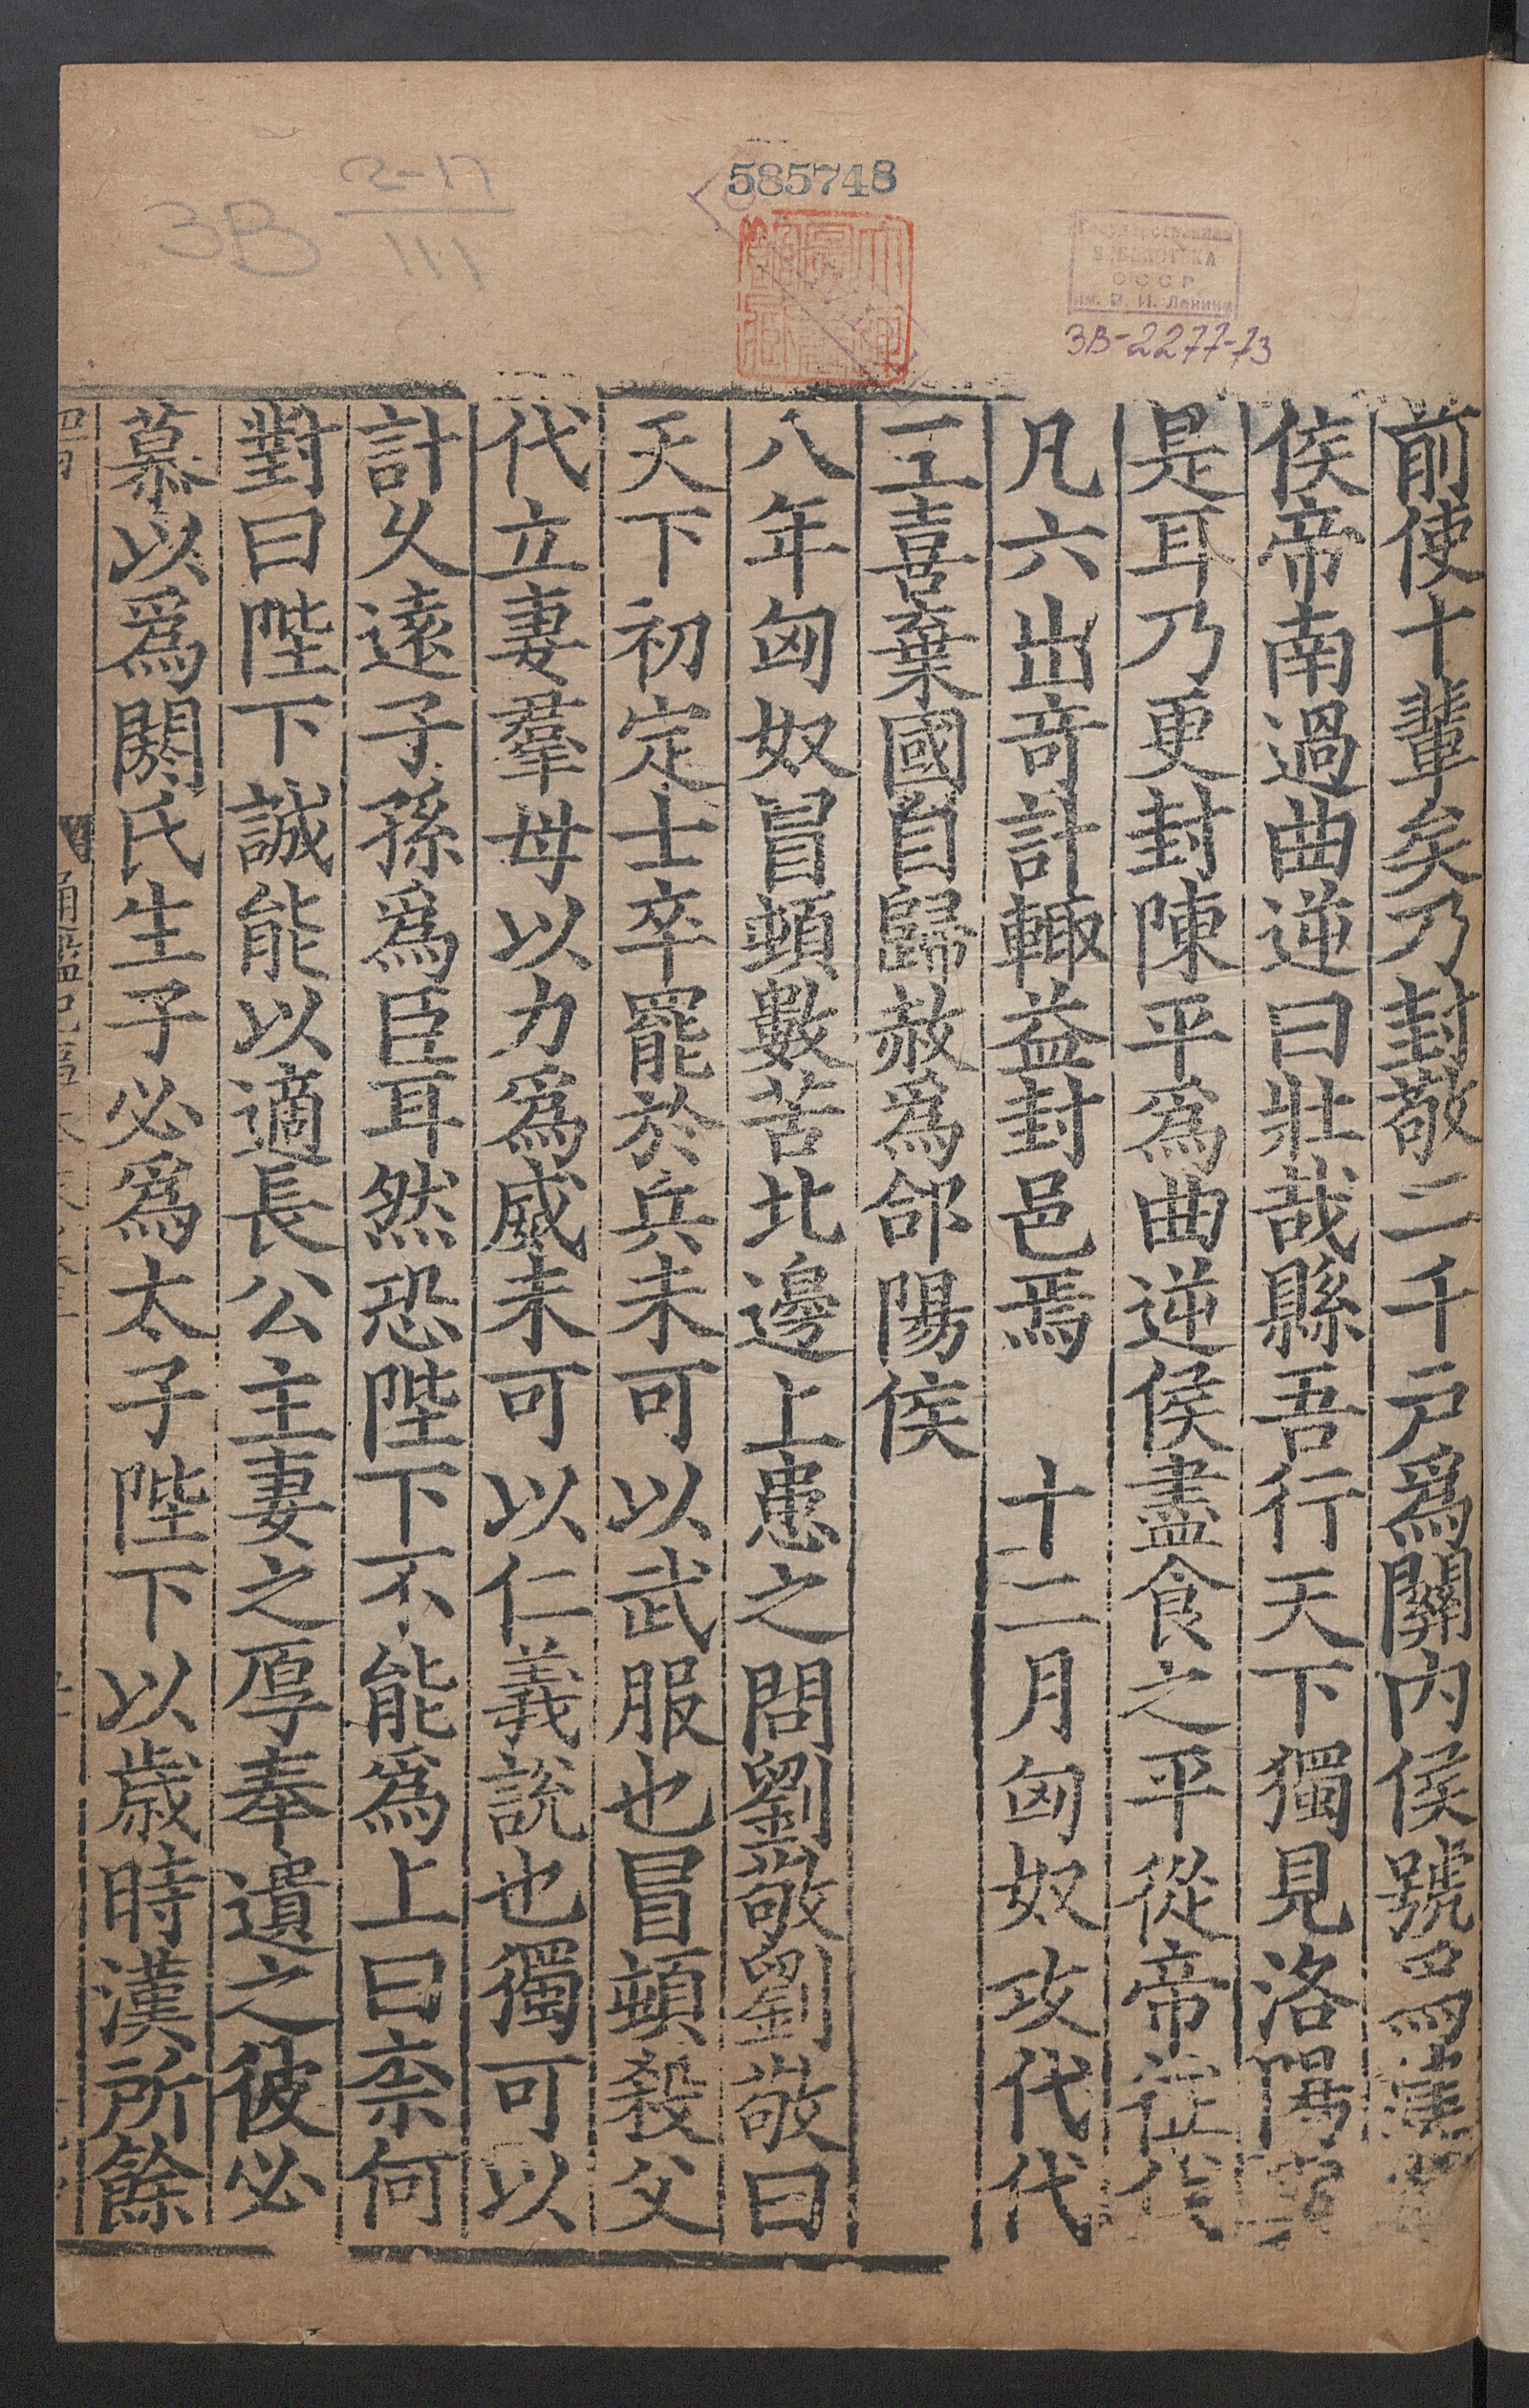 585748
2-17
3В
111
Государственная
БИБЛИОТЕКА
СССР
им. В. И. Ленина
3В-2277-73
前使十輩矣乃封敬二千户爲關内侯號
侯帝南過曲逆曰壯哉縣吾行天下獨見洛陽與
是耳乃更封陳平爲曲逆侯盡食之平從帝征伐
凡六出竒計輙益封邑焉　十二月匈奴攻代代
王喜棄國自歸赦爲郃陽侯
八年匈奴冒頓數苦北邊上患之問劉敬劉敬曰
天下初定士卒罷於兵未可以武服也冒頓殺父
代立妻羣母以力爲威未可以仁義說也獨可以
計乆遠子孫爲臣耳然恐陛下不能爲上曰柰何
對曰陛下誠能以適長公主妻之厚奉遺之彼必
慕以爲閼氏生子必爲太子陛下以歲時漢所餘